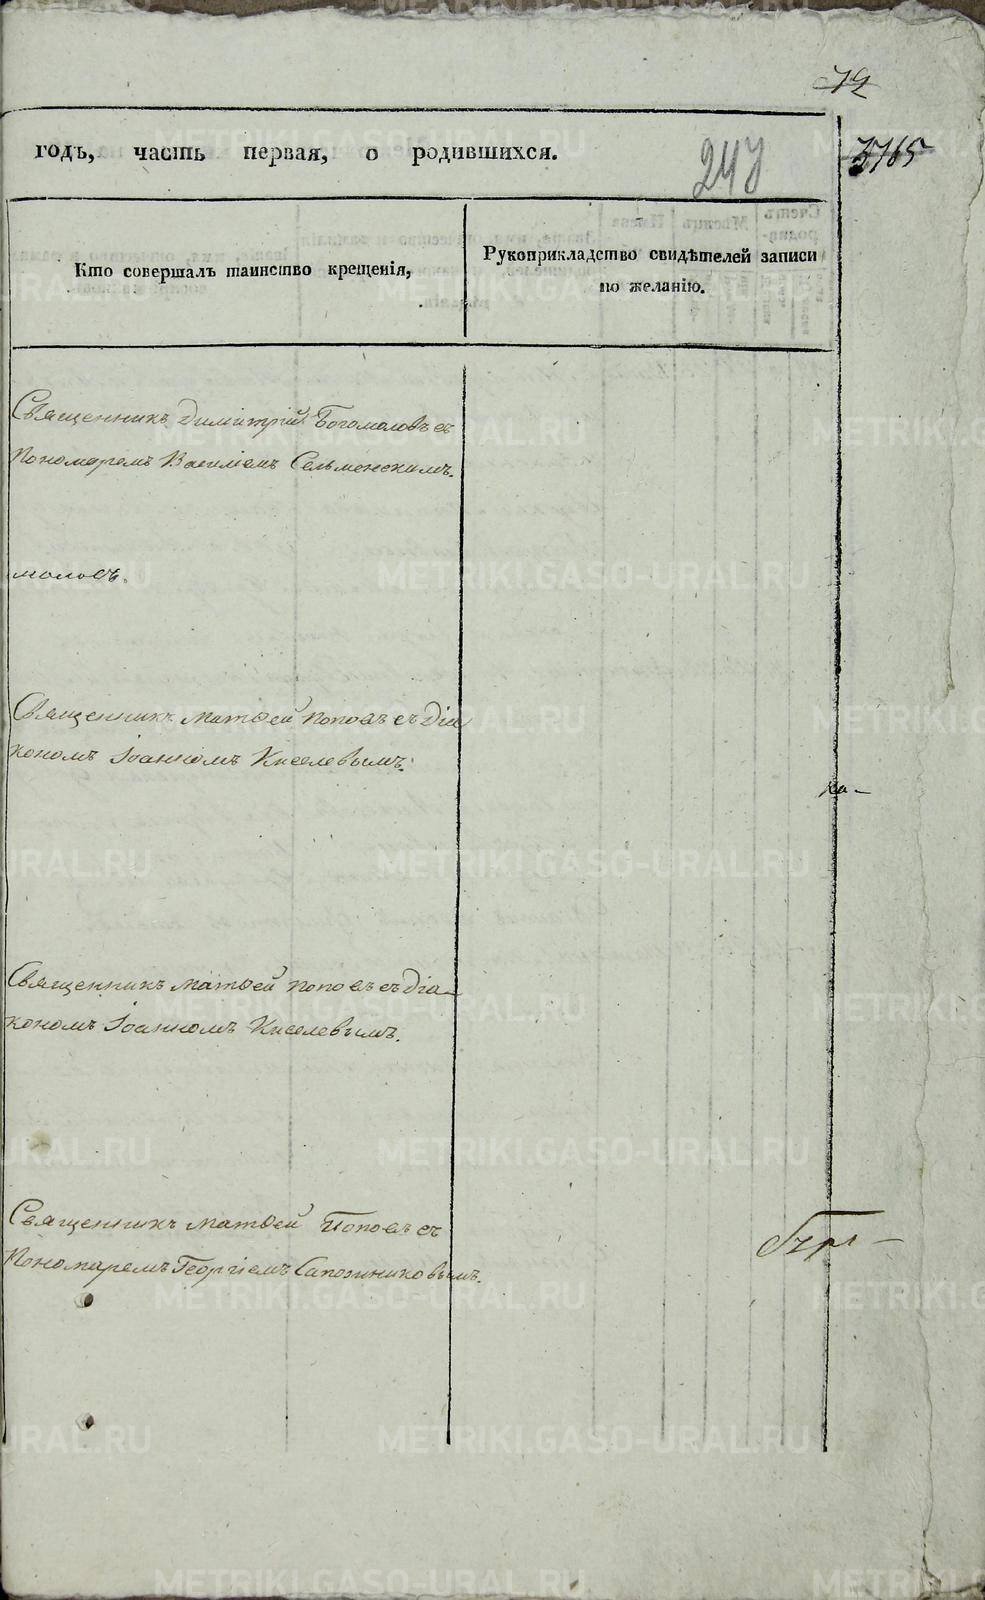 годъ, часть первая, о родившихся.
247
3765
Кто совершалъ таинство крещенія,
Рукоприкладство свидѣтелей записи
по желанію.
Священникъ Димитрій Богомоловъ съ
Пономаремъ Василіемъ Сельменскимъ.
моловъ.
Священникъ Матѳей Поповъ съ Діа
кономъ Іоанномъ Киселевымъ.
ка-
Священникъ Матѳей Поповъ съ Діа-
кономъ Іоанномъ Киселевымъ.
Священникъ Матѳей Поповъ съ
Пономаремъ Георгіемъ Сапожниковымъ.
METRIKI.GASO-URAL.RU